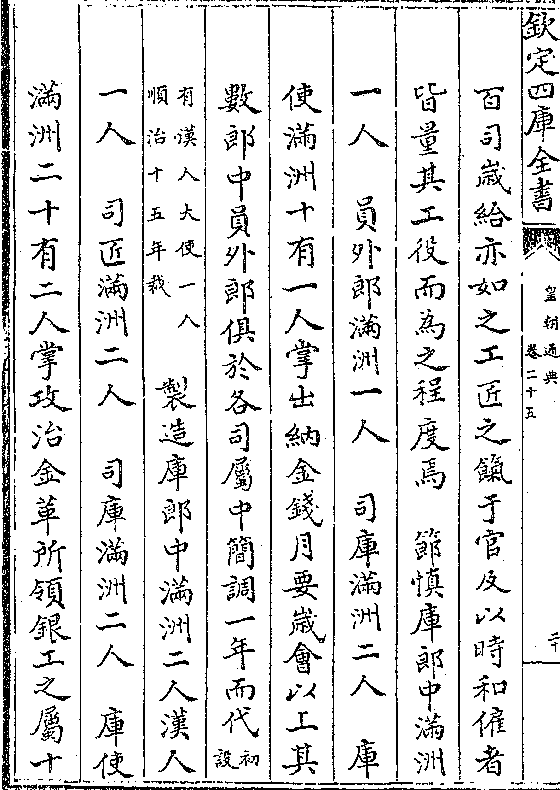 欽定四庫全書
皇朝通典
卷二十五
二十
百司歳給亦如之工匠之餼于官及以時和僱者
皆量其工役而為之程度焉　節慎庫郎中滿洲
一人　員外郎滿洲一人　司庫滿洲二人　庫
使滿洲十有一人掌出納金錢月要歳會以工其
數郎中員外郎俱於各司屬中簡調一年而代初
設
有漢人大使一人
順治十五年裁
製造庫郎中滿洲二人漢人
一人　司匠滿洲二人　司庫滿洲二人　庫使
滿洲二十有二人掌攻治金革所領銀工之屬十